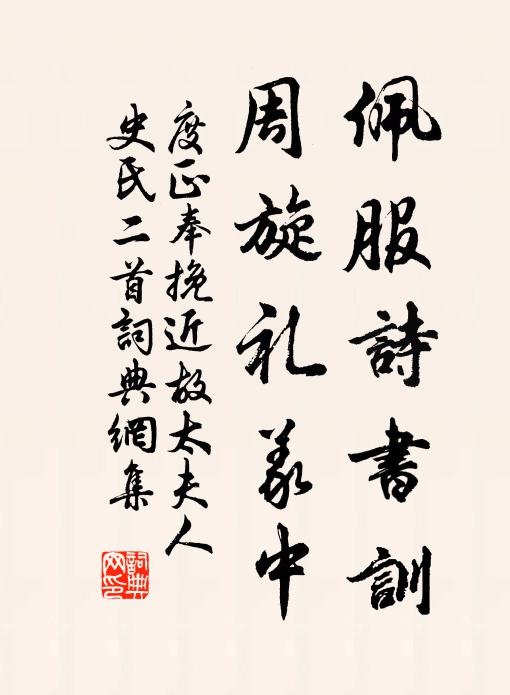 佩服詩書訓
周旋礼義中
度正奉挽近故太夫人
史氏二首詞典網集
詞典网印